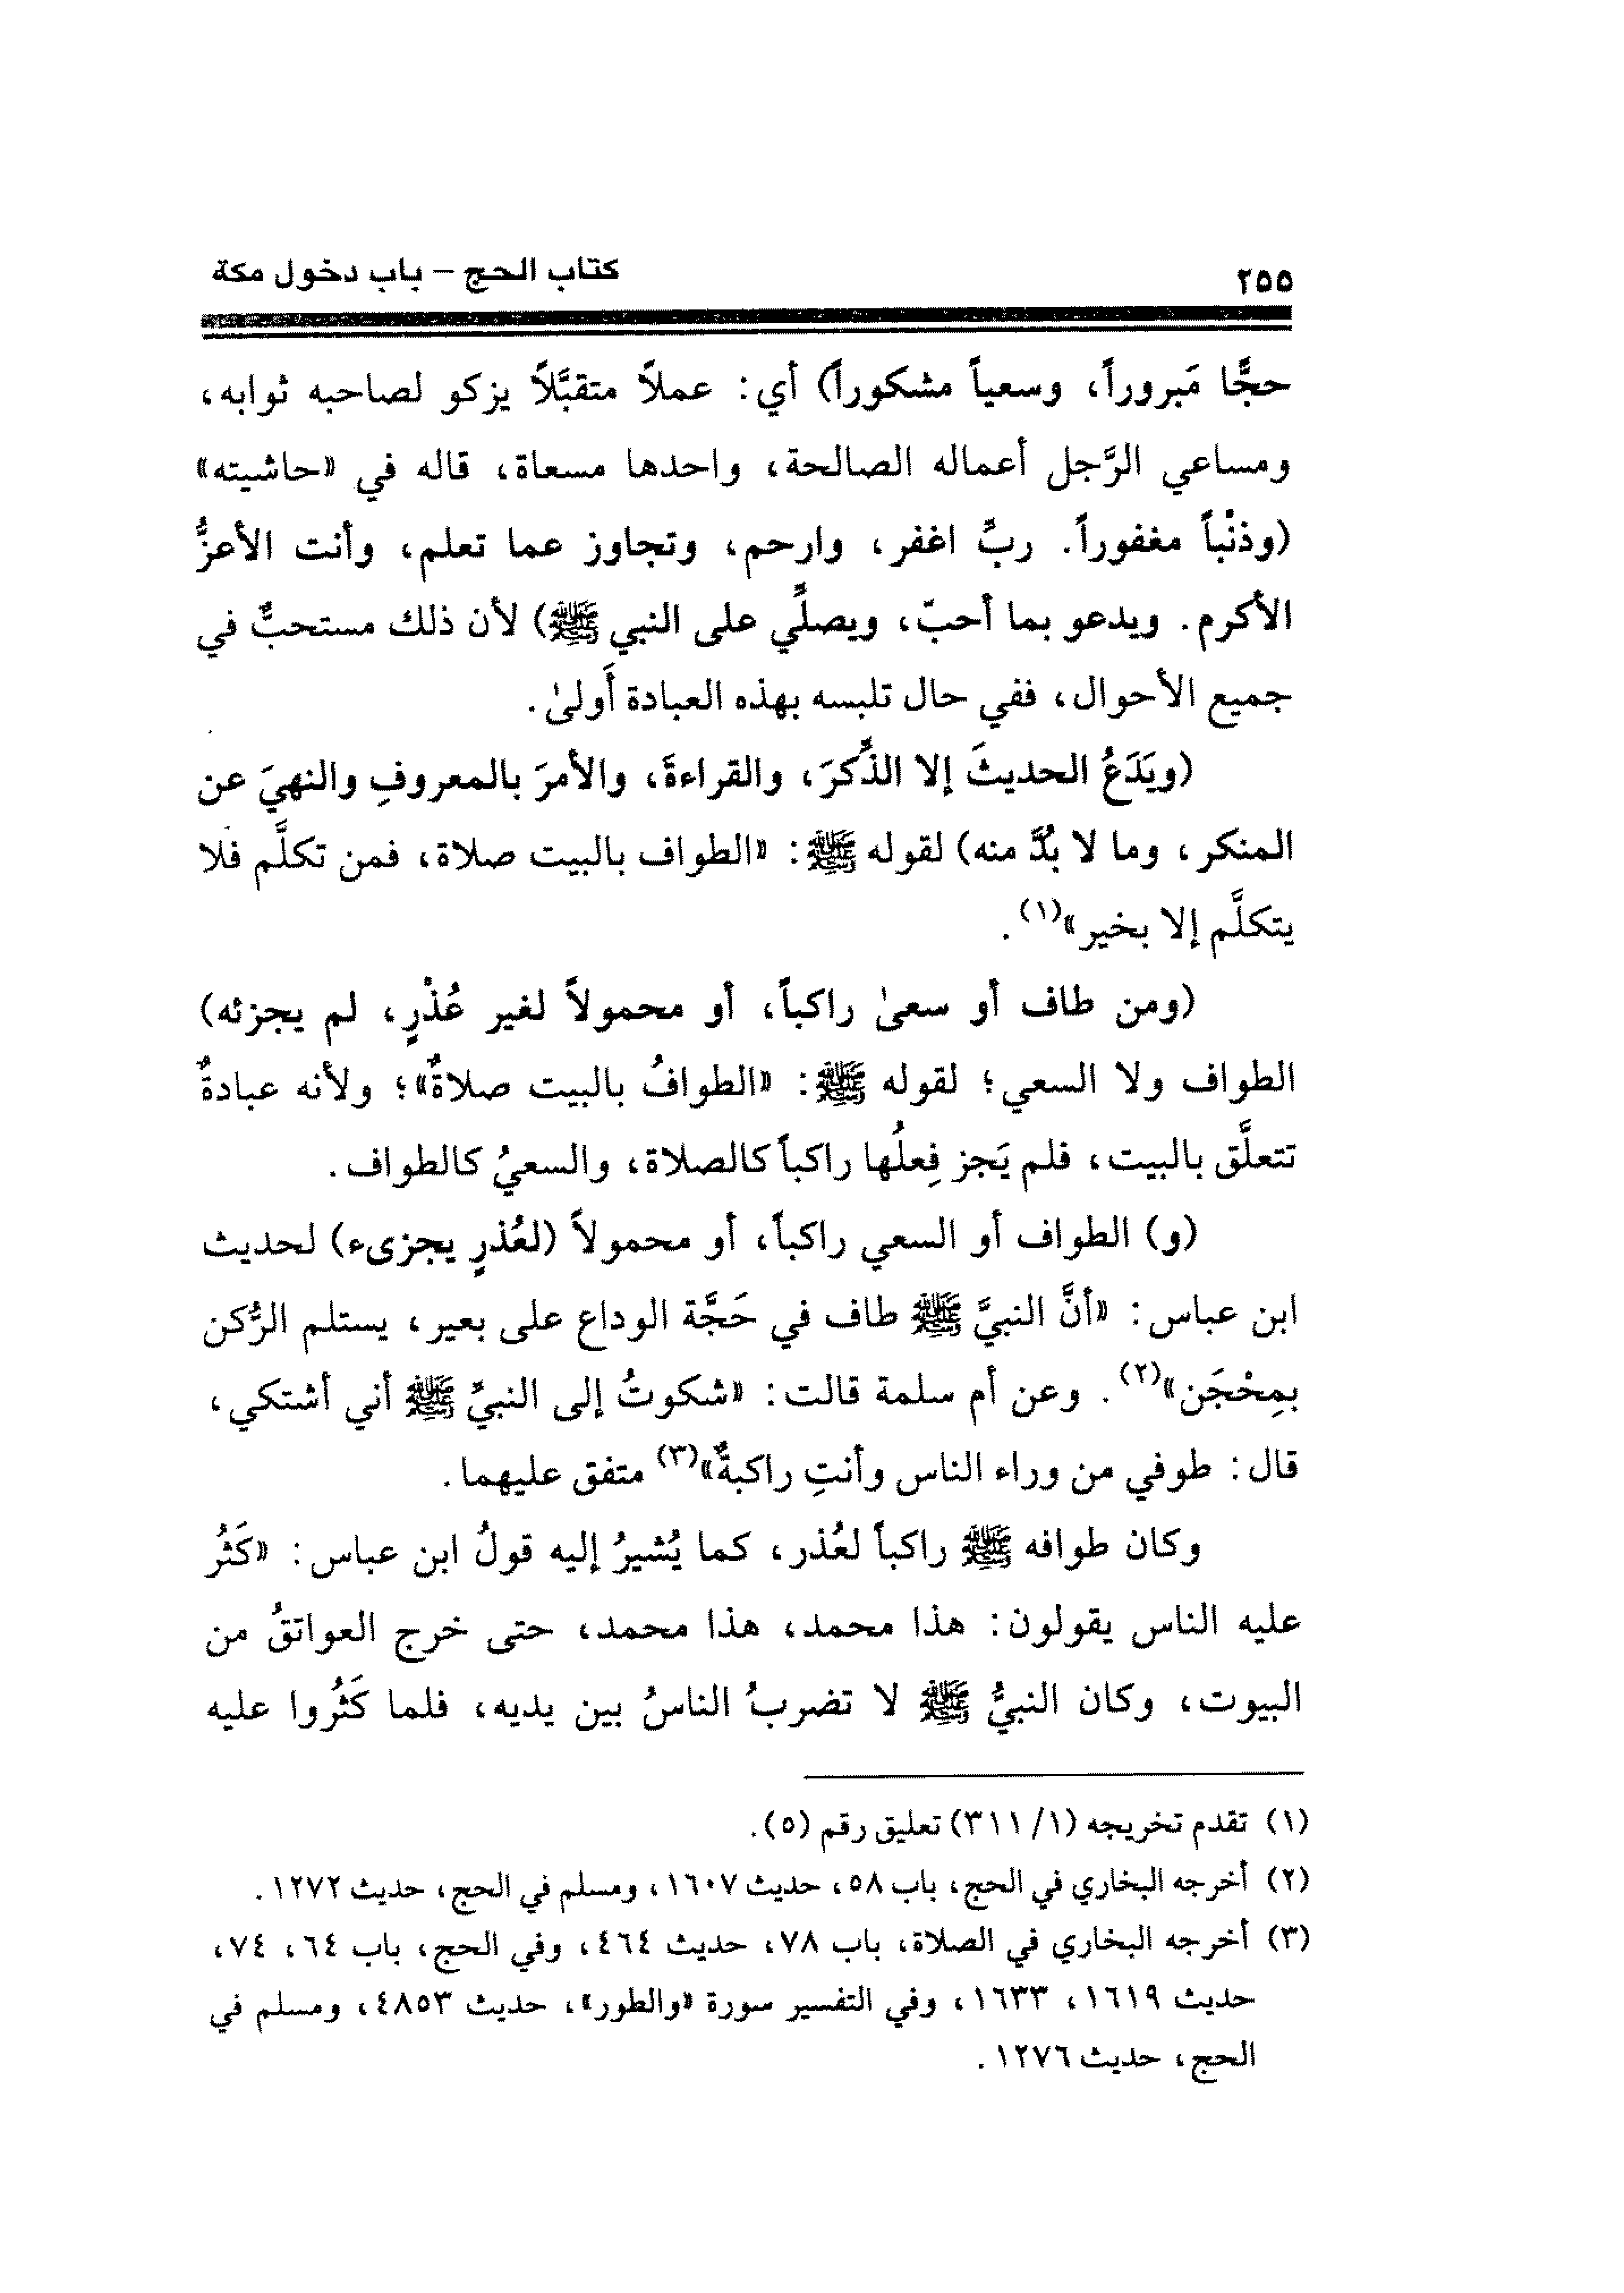 ٢٥٥
كتاب الحج – باب دخول مكة
حجًّا مَبروراً، وسعياً مشكوراً) أي: عملاً متقبَّلاً يزكو لصاحبه ثوابه،
ومساعي الرَّجل أعماله الصالحة، واحدها مسعاة، قاله في «حاشيته»
(وذنْباً مغفوراً. ربِّ اغفر، وارحم، وتجاوز عما تعلم، وأنت الأعزُّ
الأكرم. ويدعو بما أحبّ، ويصلِّي على النبي ﷺ) لأن ذلك مستحبٌّ في
جميع الأحوال، ففي حال تلبسه بهذه العبادة أَولىٰ.
(ويَدَعُ الحديثَ إلا الذِّكرَ، والقراءةَ، والأمرَ بالمعروفِ والنهيَ عن
المنكر، وما لا بُدَّ منه) لقوله ﷺ: «الطواف بالبيت صلاة، فمن تكلَّم فلا
يتكلَّم إلا بخير»(١).
(ومن طاف أو سعىٰ راكباً، أو محمولاً لغير عُذْرٍ، لم يجزئه)
الطواف ولا السعي؛ لقوله ﷺ: «الطوافُ بالبيت صلاةٌ»؛ ولأنه عبادةٌ
تتعلَّق بالبيت، فلم يَجز فِعلُها راكباً كالصلاة، والسعيُ كالطواف.
(و) الطواف أو السعي راكباً، أو محمولاً (لعُذرٍ يجزىء) لحديث
ابن عباس: «أنَّ النبيَّ ﷺ طاف في حَجَّة الوداع على بعير، يستلم الرُّكن
بمِحْجَن»(٢). وعن أم سلمة قالت: «شكوتُ إلى النبيِّ ﷺ أني أشتكي،
قال: طوفي من وراء الناس وأنتِ راكبةٌ»(٣) متفق عليهما.
وكان طوافه ﷺ راكباً لعُذر، كما يُشيرُ إليه قولُ ابن عباس: «كَثُر
عليه الناس يقولون: هذا محمد، هذا محمد، حتى خرج العواتقُ من
البيوت، وكان النبيُّ ﷺ لا تضربُ الناسُ بين يديه، فلما كَثُروا عليه
(١) تقدم تخريجه (١/ ٣١١) تعليق رقم (٥).
(٢) أخرجه البخاري في الحج، باب ٥٨، حديث ١٦٠٧، ومسلم في الحج، حديث ١٢٧٢.
(٣) أخرجه البخاري في الصلاة، باب ٧٨، حديث ٤٦٤، وفي الحج، باب ٦٤، ٧٤،
حديث ١٦١٩، ١٦٣٣، وفي التفسير سورة «والطور»، حديث ٤٨٥٣، ومسلم في
الحج، حديث ١٢٧٦.